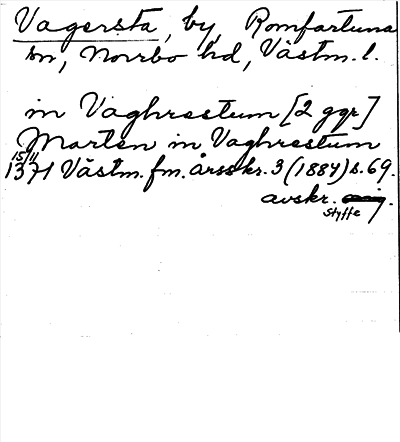 Vagersta, by, Romfartuna
sn, Norrbo hd, Västm. l.
in Vaghrestum [2 ggr]
Marten in Vaghrestum
15/11
1371 Västm. fm. årsskr. 3 (1884) s. 69.
avskr.
Styffe